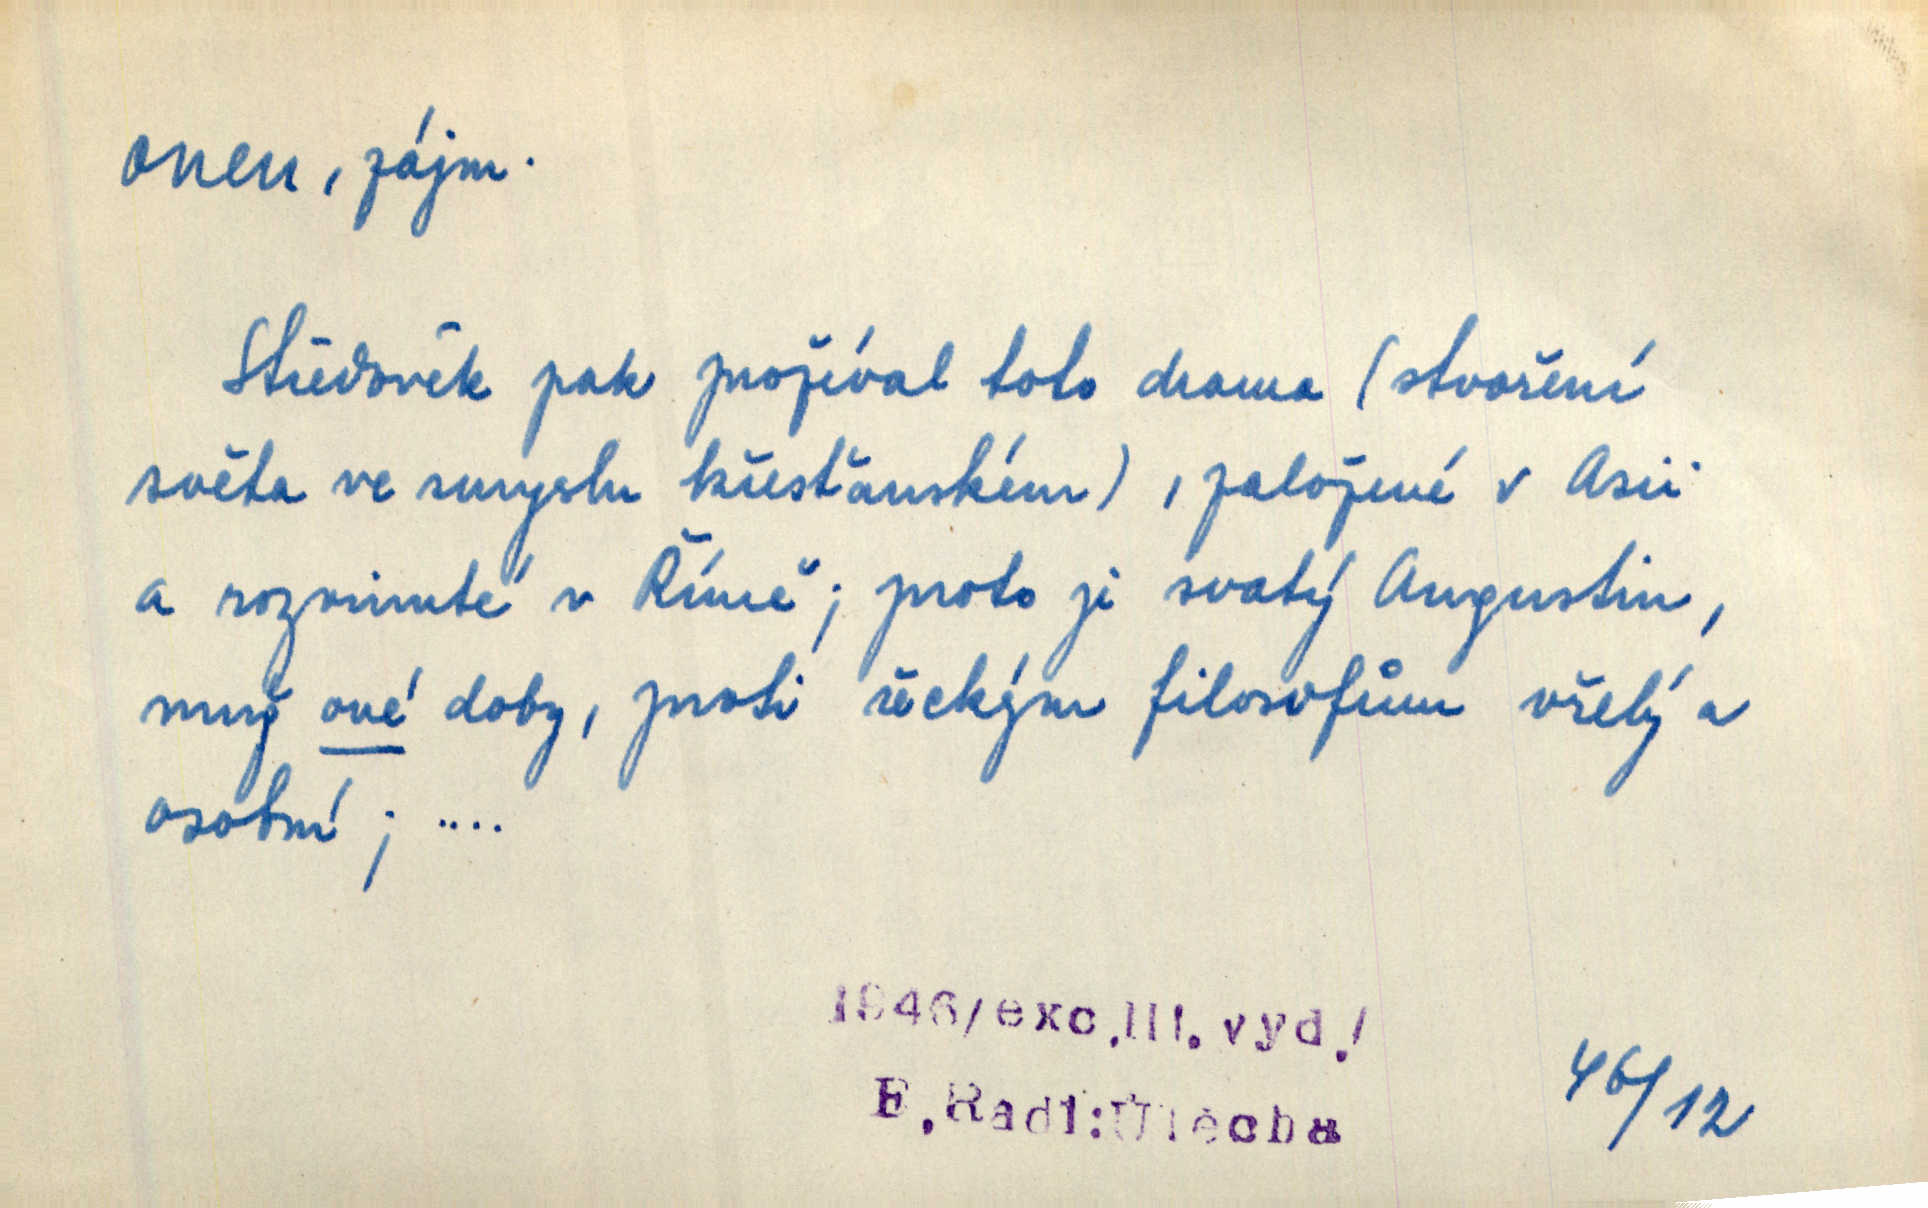 onen, zájm.
Středověk pak prožíval toto drama (stvoření
světa ve smyslu křesťanském), založené v Asii
a rozvinuté v Římě; proto je svatý Augustin,
muž oné doby, proti řeckým filosofům vřelý a
osobní; ....
1946/exc.III.vyd./
E.Rádl:Útěcha
46/12